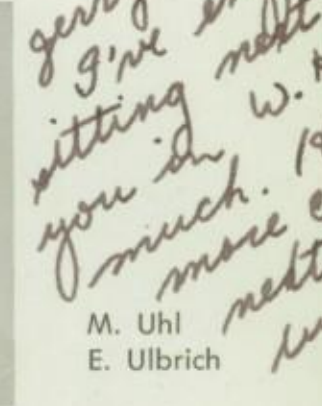 Jerry
I've en
sitting next
you in W. H
much. 19
more
next
M. Uhl
E. Ulbrich